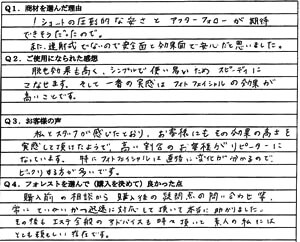 Q1. 商材を選んだ理由
1ショットの圧倒的な安さとアフターフォローが期待
できそうだったので。
また、連射式でないので安全面と効果面で安心だと思いました。
Q2. ご使用になられた感想
脱毛効果も高く、シンプルで使い易いためスピーディに
こなせます。そして一番の実感はフォトフェイシャルの効果が
高いことです。
Q3. お客様の声
私とスタッフが感じており、お客様にもその効果の高さを
実感して頂けたようで、高い割合のお客様がリピーターに
なっています。特にフォトフェイシャルは直後に変化が分かるので
ビックリする方が多いです。
Q4. フォレストを選んで(購入を決めて)良かった点
購入前の相談から購入後の疑問点の問い合わせ等、
常にていねいかつ迅速に対応して頂いて本当に助かりました。
その後もエステ全般のアドバイスも時々頂いて素人の私には
とても頼もしい存在です。